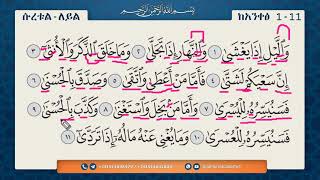 ሱረቱል-ለይል
بِسْمِ اللَّهِ الرَّحْمَٰنِ الرَّحِيمِ
ከአንቀፅ 1-11
وَاللَّيْلِ إِذَا يَغْشَىٰ ١ وَالنَّهَارِ إِذَا تَجَلَّىٰ ٢ وَمَا خَلَقَ الذَّكَرَ وَالْأُنثَىٰ ٣
إِنَّ سَعْيَكُمْ لَشَتَّىٰ ٤ فَأَمَّا مَنْ أَعْطَىٰ وَاتَّقَىٰ ٥ وَصَدَّقَ بِالْحُسْنَىٰ ٦
فَسَنُيَسِّرُهُ لِلْيُسْرَىٰ ٧ وَأَمَّا مَن بَخِلَ وَاسْتَغْنَىٰ ٨ وَكَذَّبَ بِالْحُسْنَىٰ ٩
فَسَنُيَسِّرُهُ لِلْعُسْرَىٰ ١٠ وَمَا يُغْنِي عَنْهُ مَالُهُ إِذَا تَرَدَّىٰ ١١